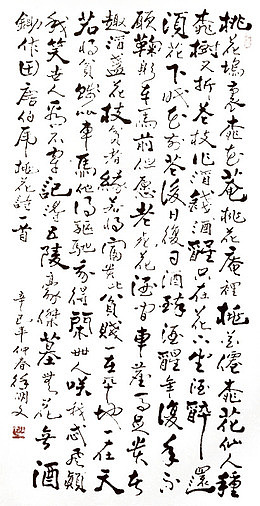 桃花塢裏桃花菴桃花庵裡桃花僊桃花仙人種
桃樹又折花枝作酒錢酒醒只在花下坐酒醉還
須花下眠花前花後日復日酒醉酒醒年復年不
願鞠躬車馬前但願老死花酒間車塵馬足貴者
趣酒盞花枝貧者緣若將富貴比貧賤一在平地一在天
若將貧賤比車馬他得驅馳我得閑世人咲我忒風顛
我笑世人看不穿記得五陵豪傑墓無花無酒
鋤作田唐伯虎桃花詩一首
辛巳年仲春徐